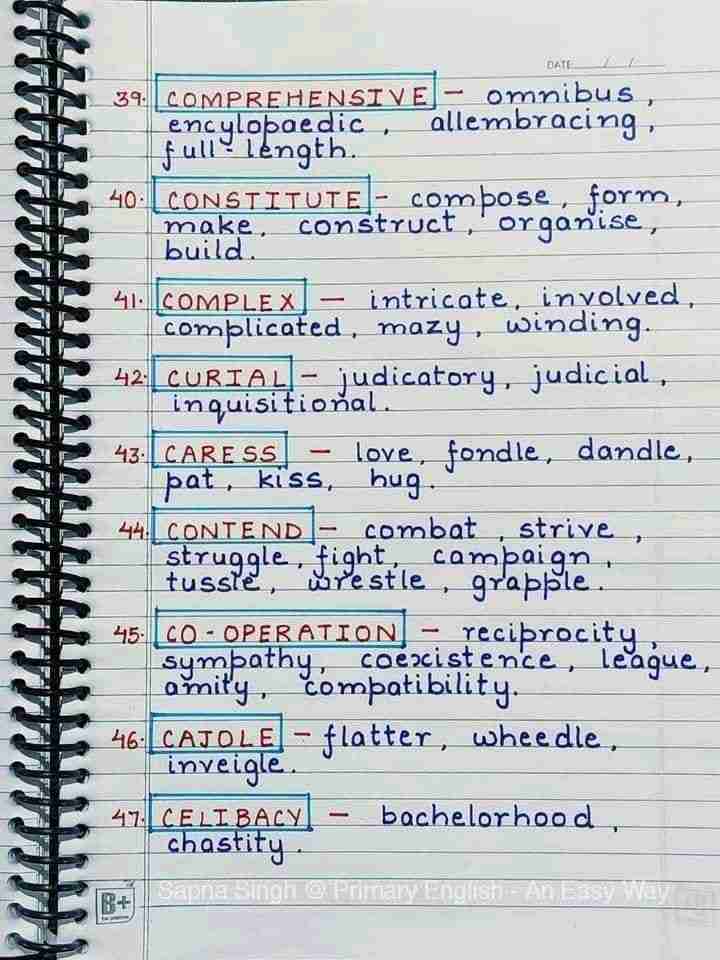 DATE / /
39. COMPREHENSIVE – omnibus,
encylopaedic, allembracing,
full-length.
40. CONSTITUTE – compose, form,
make, construct, organise,
build.
41. COMPLEX – intricate, involved,
complicated, mazy, winding.
42. CURIAL – judicatory, judicial,
inquisitional.
43. CARESS – love, fondle, dandle,
pat, kiss, hug.
44. CONTEND – combat, strive,
struggle, fight, campaign,
tussle, wrestle, grapple.
45. CO-OPERATION – reciprocity,
sympathy, coexistence, league,
amity, compatibility.
46. CAJOLE – flatter, wheedle,
inveigle.
47. CELIBACY – bachelorhood,
chastity.
Sapna Singh @ Primary English - An Easy Way
B+